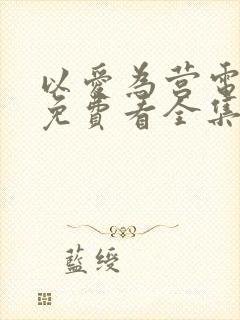 以愛為營電
免費看全集
藍綬